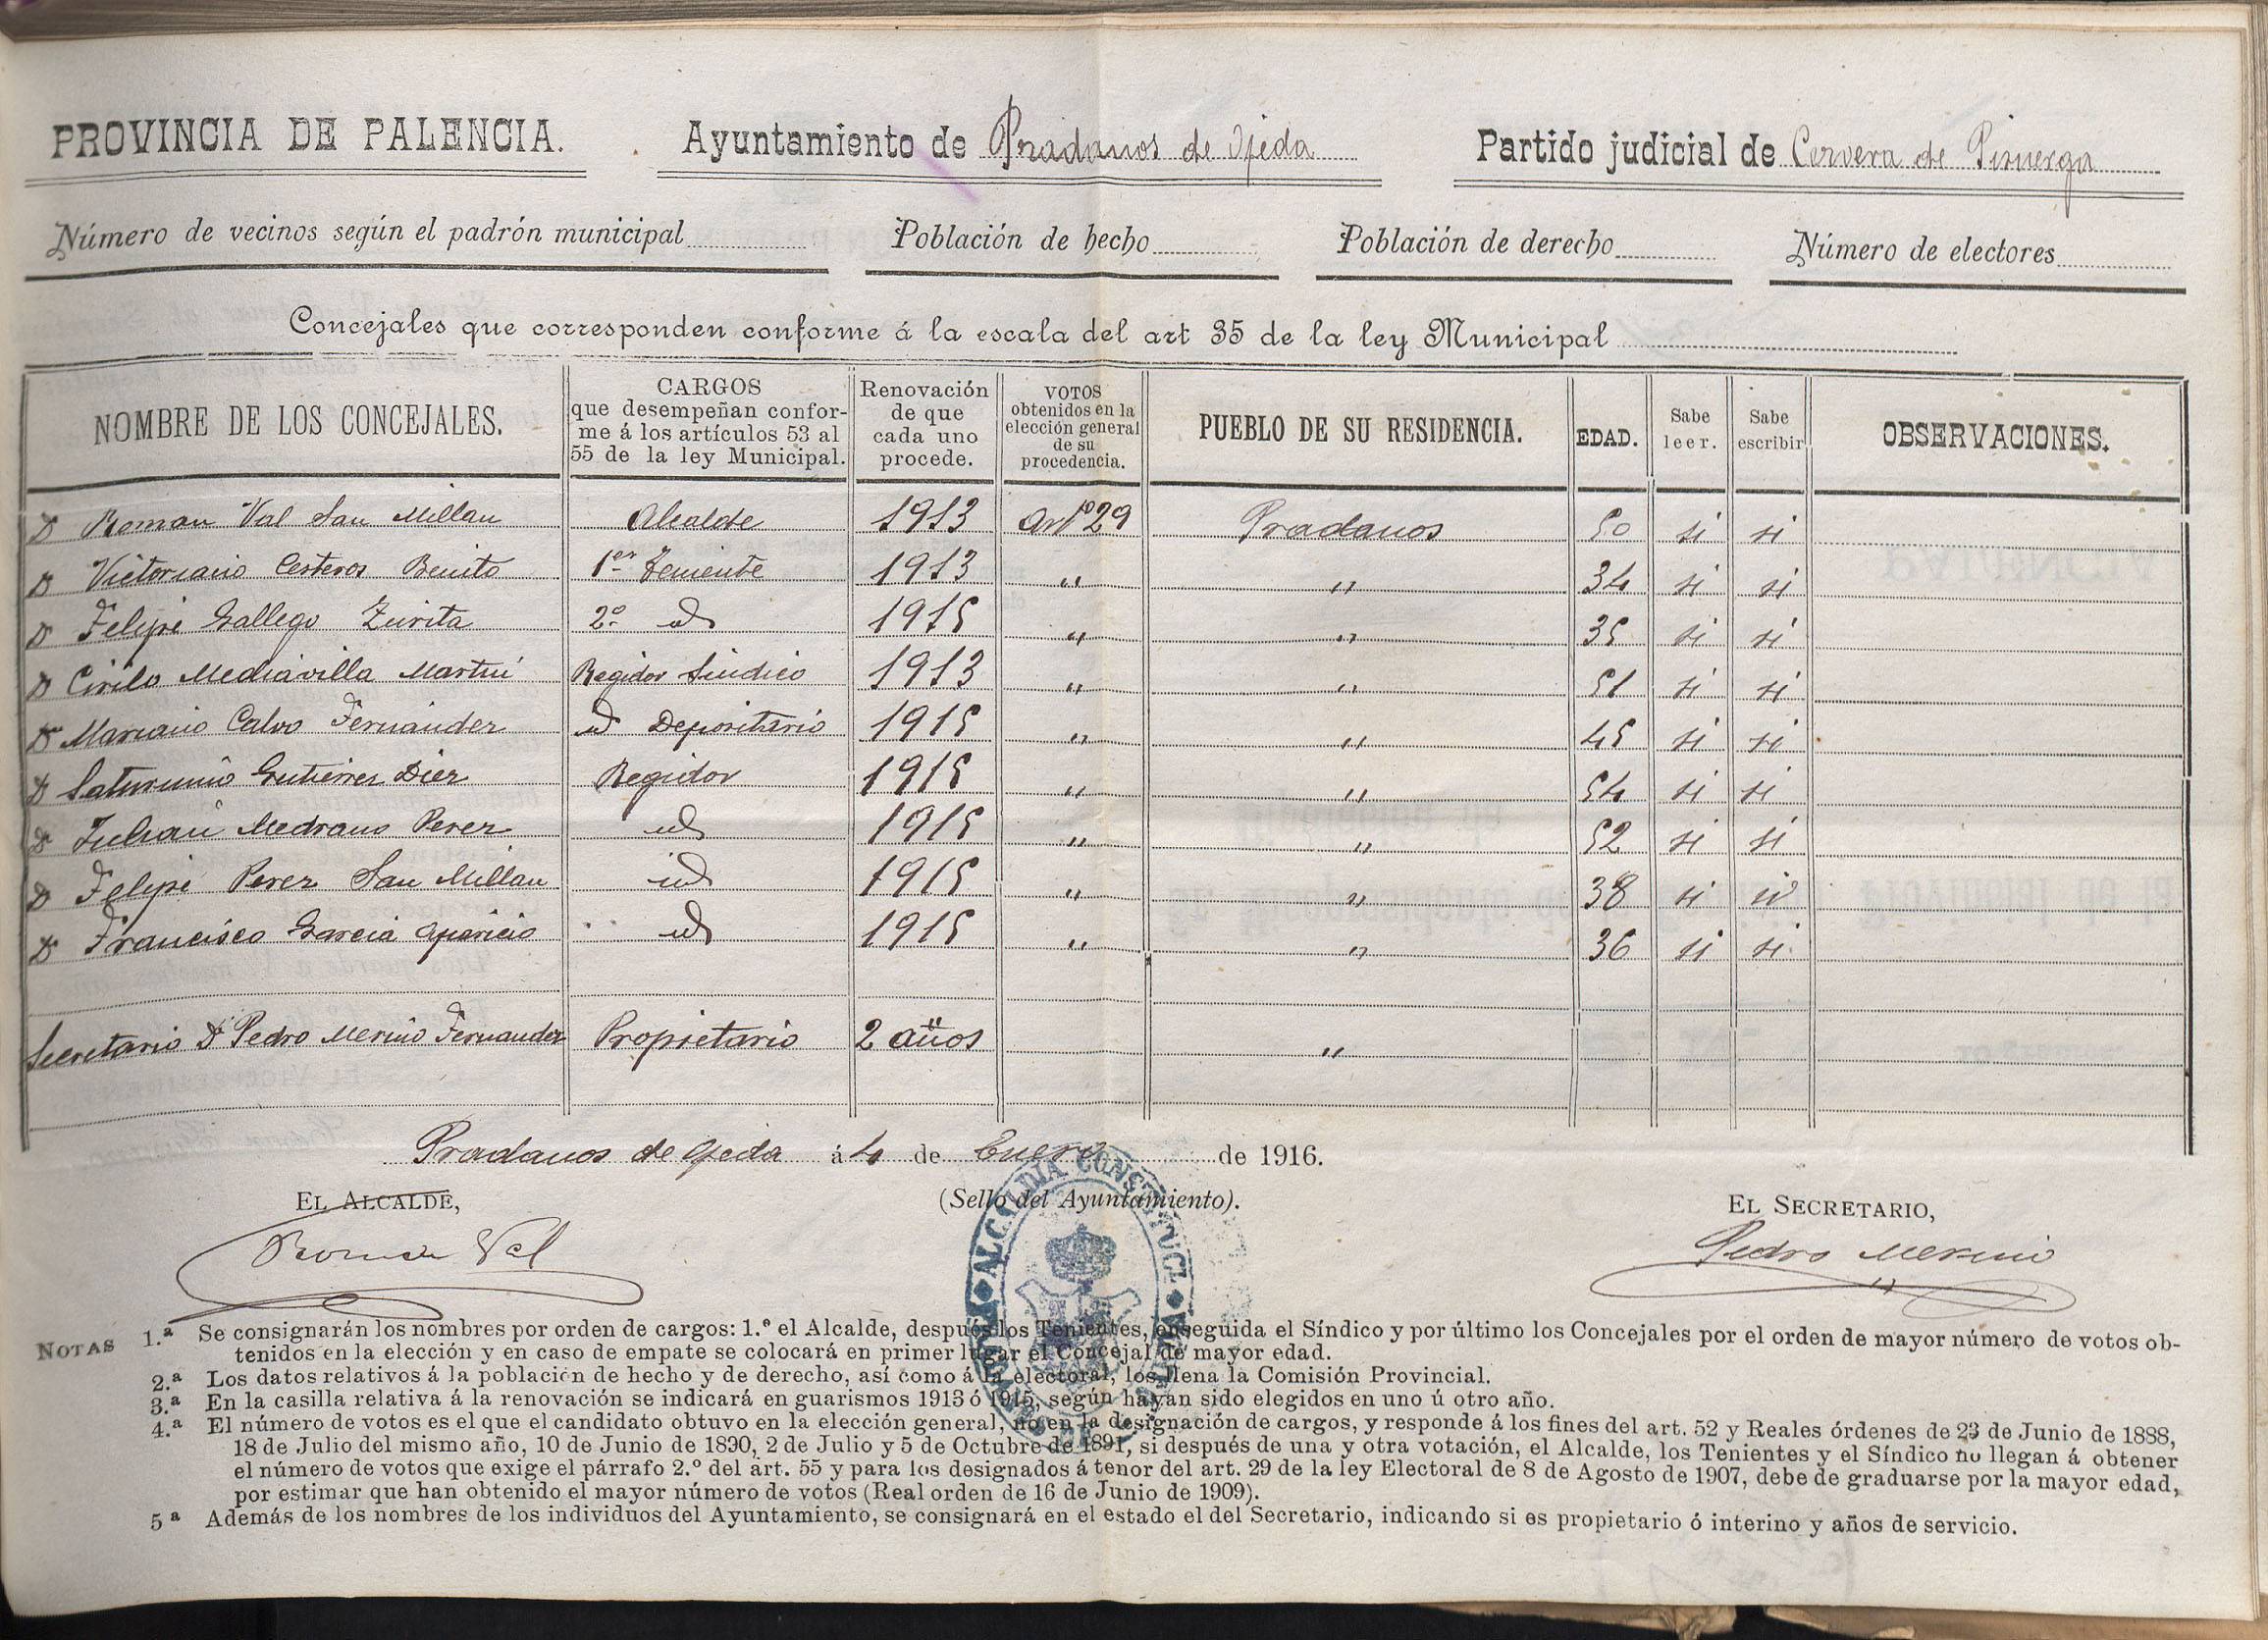 PROVINCIA DE PALENCIA. Ayuntamiento de Pradanos de Ojeda Partido judicial de Cervera de Pisuerga
Número de vecinos según el padrón municipal Población de hecho Población de derecho Número de electores
Concejales que corresponden conforme á la escala del art 35 de la ley Municipal
NOMBRE DE LOS CONCEJALES.
CARGOS
que desempeñan confor-
me á los artículos 53 al
55 de la ley Municipal.
Renovación
de que
cada uno
procede.
VOTOS
obtenidos en la
elección general
de su
procedencia.
PUEBLO DE SU RESIDENCIA.
EDAD.
Sabe
leer.
Sabe
escribir
OBSERVACIONES.
D Roman Val San Millan Alcalde 1913 Artº 29 Pradanos 50 si si
D Victoriano Cesteros Benito 1er Teniente 1913 " " 34 si si
D Felipe Gallego Zurita 2º id 1915 " " 35 si si
D Cirilo Mediavilla Martin Regidor Sindico 1913 " " 51 si si
D Mariano Calvo Fernandez id Depositario 1915 " " 45 si si
D Saturnino Gutierrez Diez Regidor 1915 " " 54 si si
D Julian Medrano Perez id 1915 " " 52 si si
D Felipe Perez San Millan id 1915 " " 38 si si
D Francisco Garcia Aparicio id 1915 " " 36 si si
Secretario D Pedro Merino Fernandez Propietario 2 años "
Pradanos de Ojeda á 4 de Enero de 1916.
EL ALCALDE, (Sello del Ayuntamiento). EL SECRETARIO,
Roman Val Pedro Merino
ALCALDIA CONSTITUCI
NOTAS 1.ª Se consignarán los nombres por orden de cargos: 1.º el Alcalde, después los Tenientes, enseguida el Síndico y por último los Concejales por el orden de mayor número de votos ob-
tenidos en la elección y en caso de empate se colocará en primer lugar el Concejal de mayor edad.
2.ª Los datos relativos á la población de hecho y de derecho, así como á la electoral, los llena la Comisión Provincial.
3.ª En la casilla relativa á la renovación se indicará en guarismos 1913 ó 1915, según hayan sido elegidos en uno ú otro año.
4.ª El número de votos es el que el candidato obtuvo en la elección general, no en la designación de cargos, y responde á los fines del art. 52 y Reales órdenes de 23 de Junio de 1888,
18 de Julio del mismo año, 10 de Junio de 1890, 2 de Julio y 5 de Octubre de 1891, si después de una y otra votación, el Alcalde, los Tenientes y el Síndico no llegan á obtener
el número de votos que exige el párrafo 2.º del art. 55 y para los designados á tenor del art. 29 de la ley Electoral de 8 de Agosto de 1907, debe de graduarse por la mayor edad,
por estimar que han obtenido el mayor número de votos (Real orden de 16 de Junio de 1909).
5ª Además de los nombres de los individuos del Ayuntamiento, se consignará en el estado el del Secretario, indicando si es propietario ó interino y años de servicio.